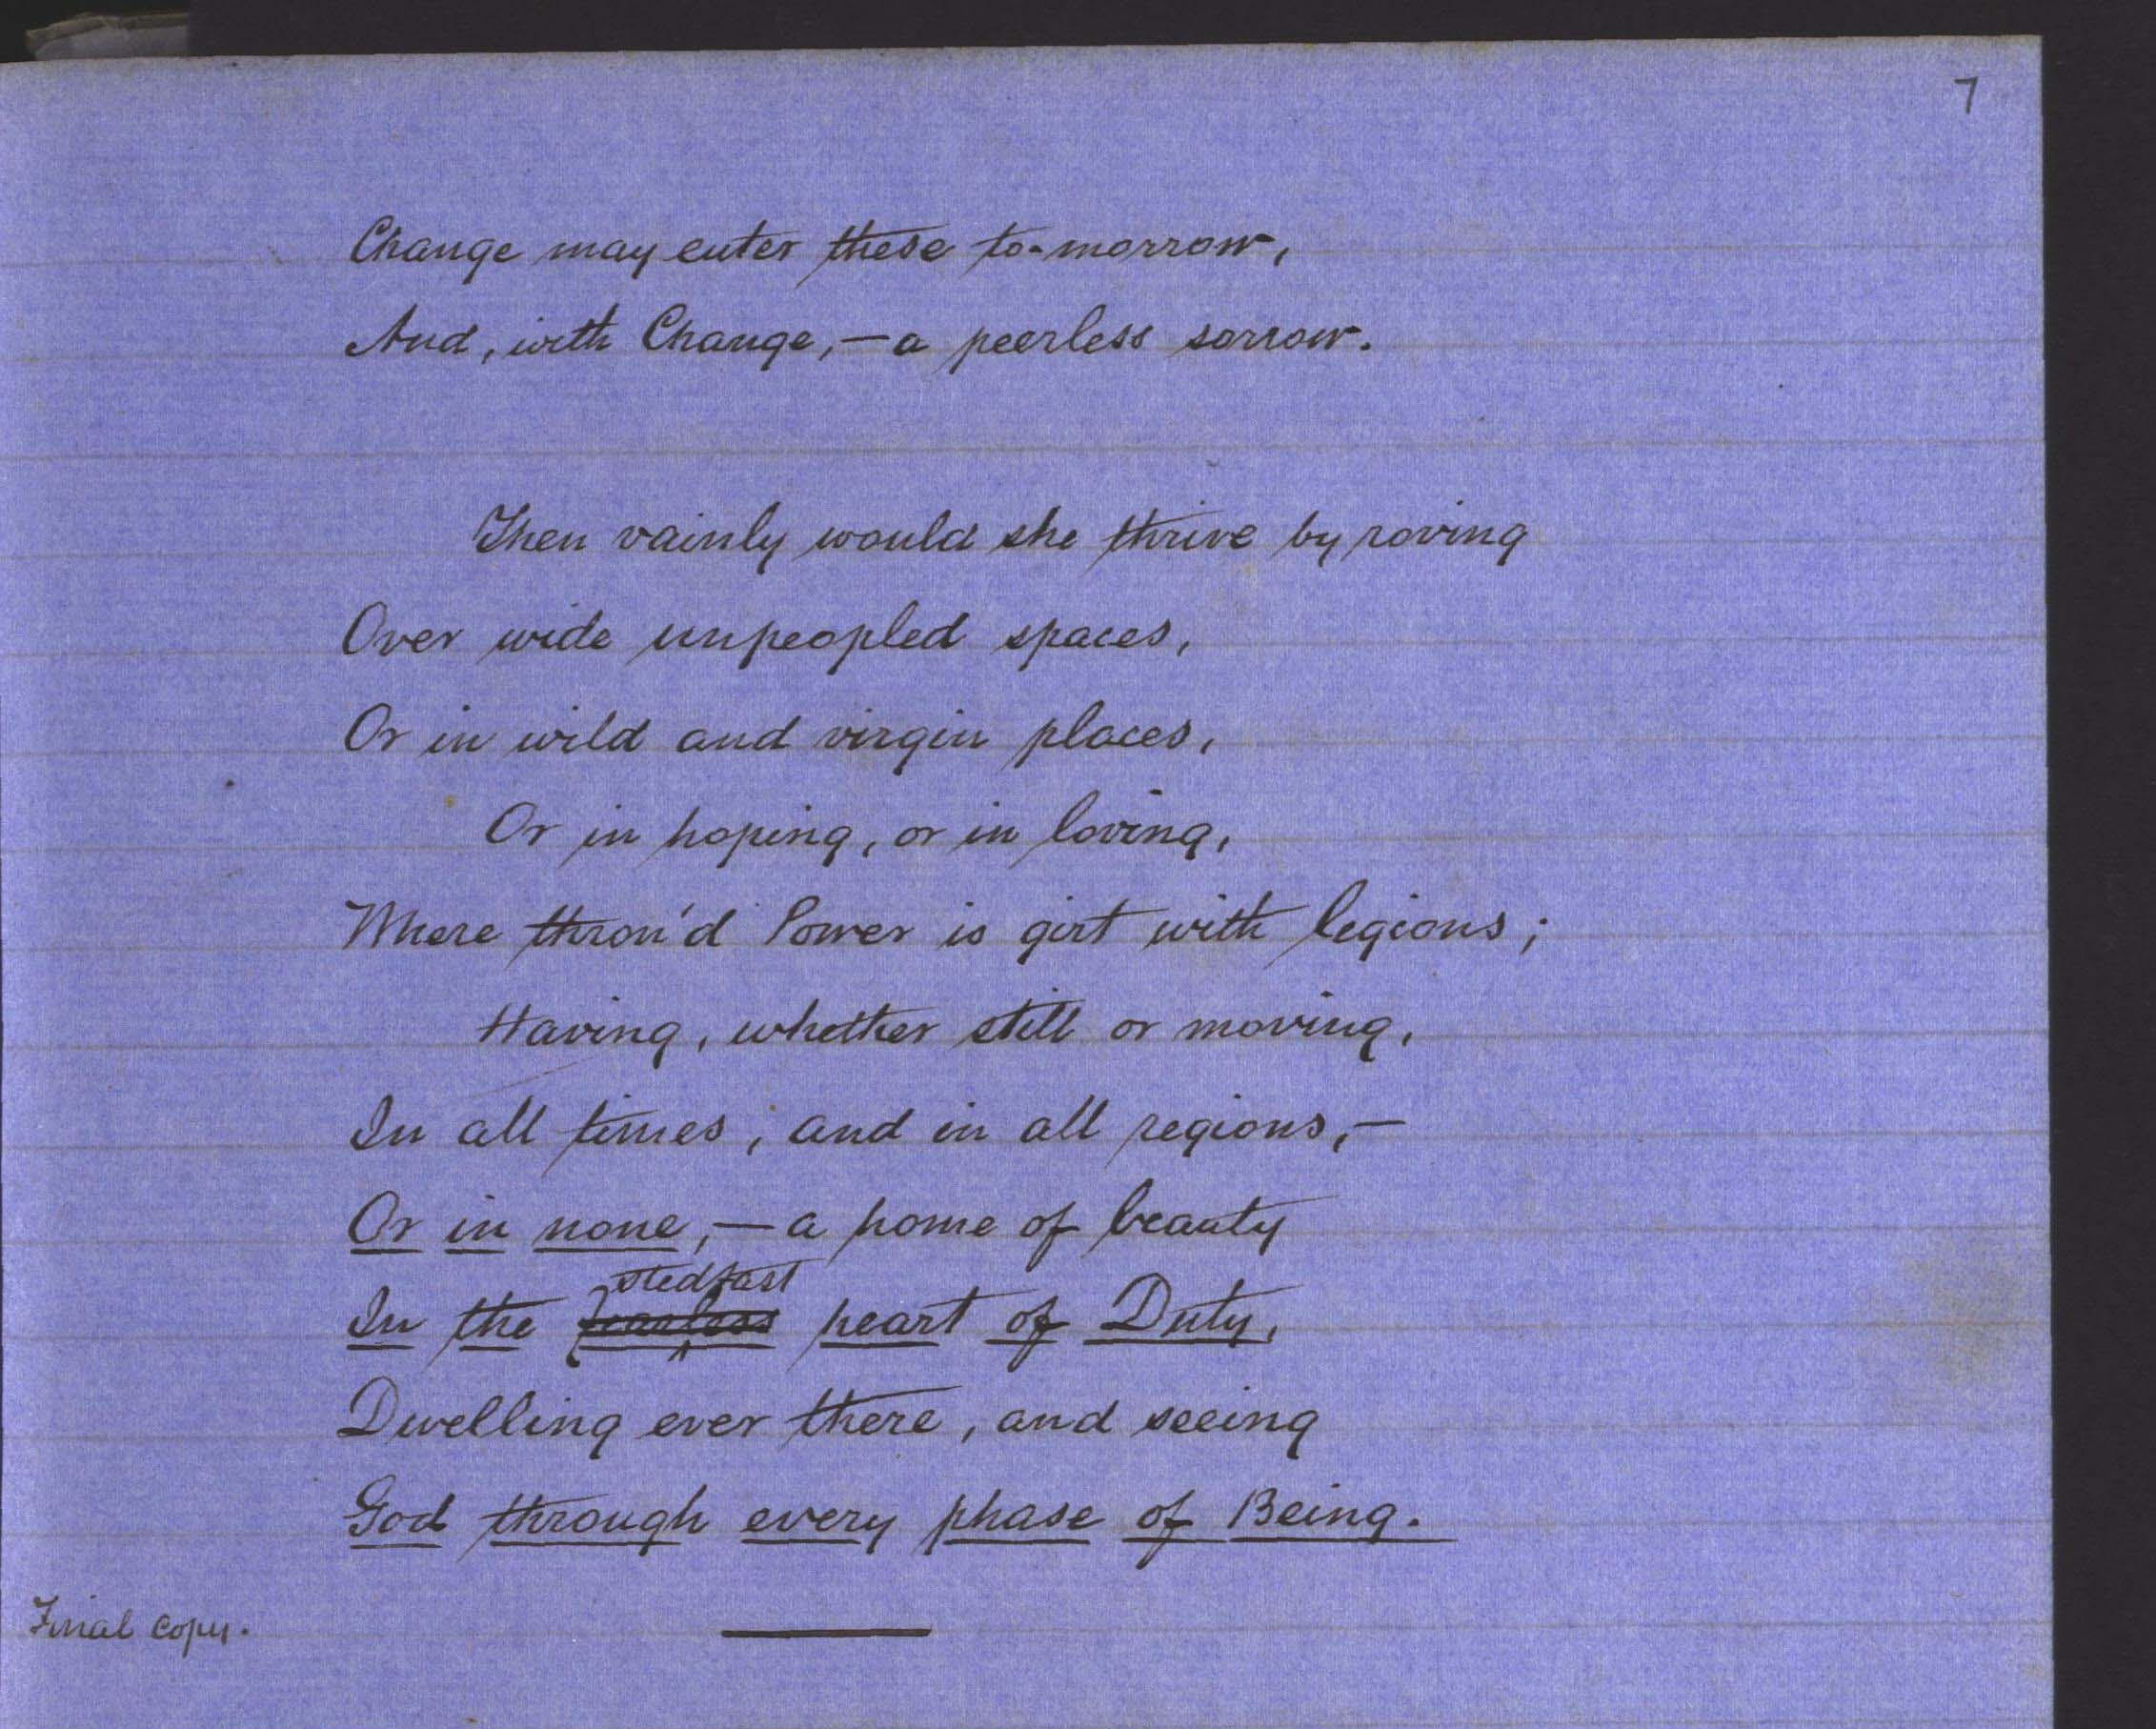 7
Change may enter these to-morrow,
And, with Change,—a peerless sorrow.
Then vainly would she thrive by roving
Over wide unpeopled spaces,
Or in wild and virgin places,
Or in hoping, or in loving,
Where thron'd Power is girt with legions;
Having, whether still or moving,
In all times, and in all regions,—
Or in none,—a home of beauty
stedfast
In the fearless heart of Duty,
Dwelling ever there, and seeing
God through every phase of Being.
Final copy.